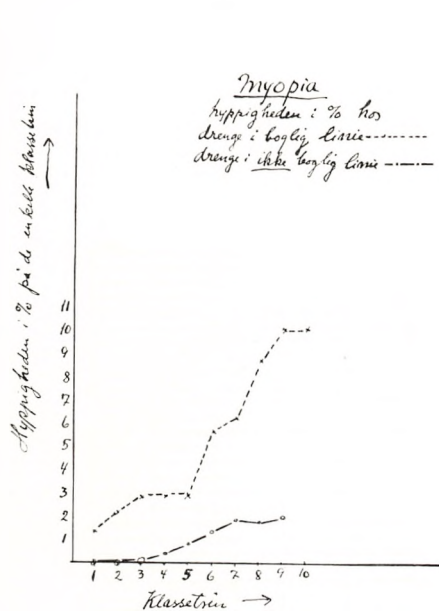 Myopia
hyppigheden i % hos
drenge i boglig linie
drenge i ikke boglig linie
Hyppigheden i % på de enkelte klassetrin
11
10
9
8
7
6
5
4
3
2
1
1 2 3 4 5 6 7 8 9 10
Klassetrin